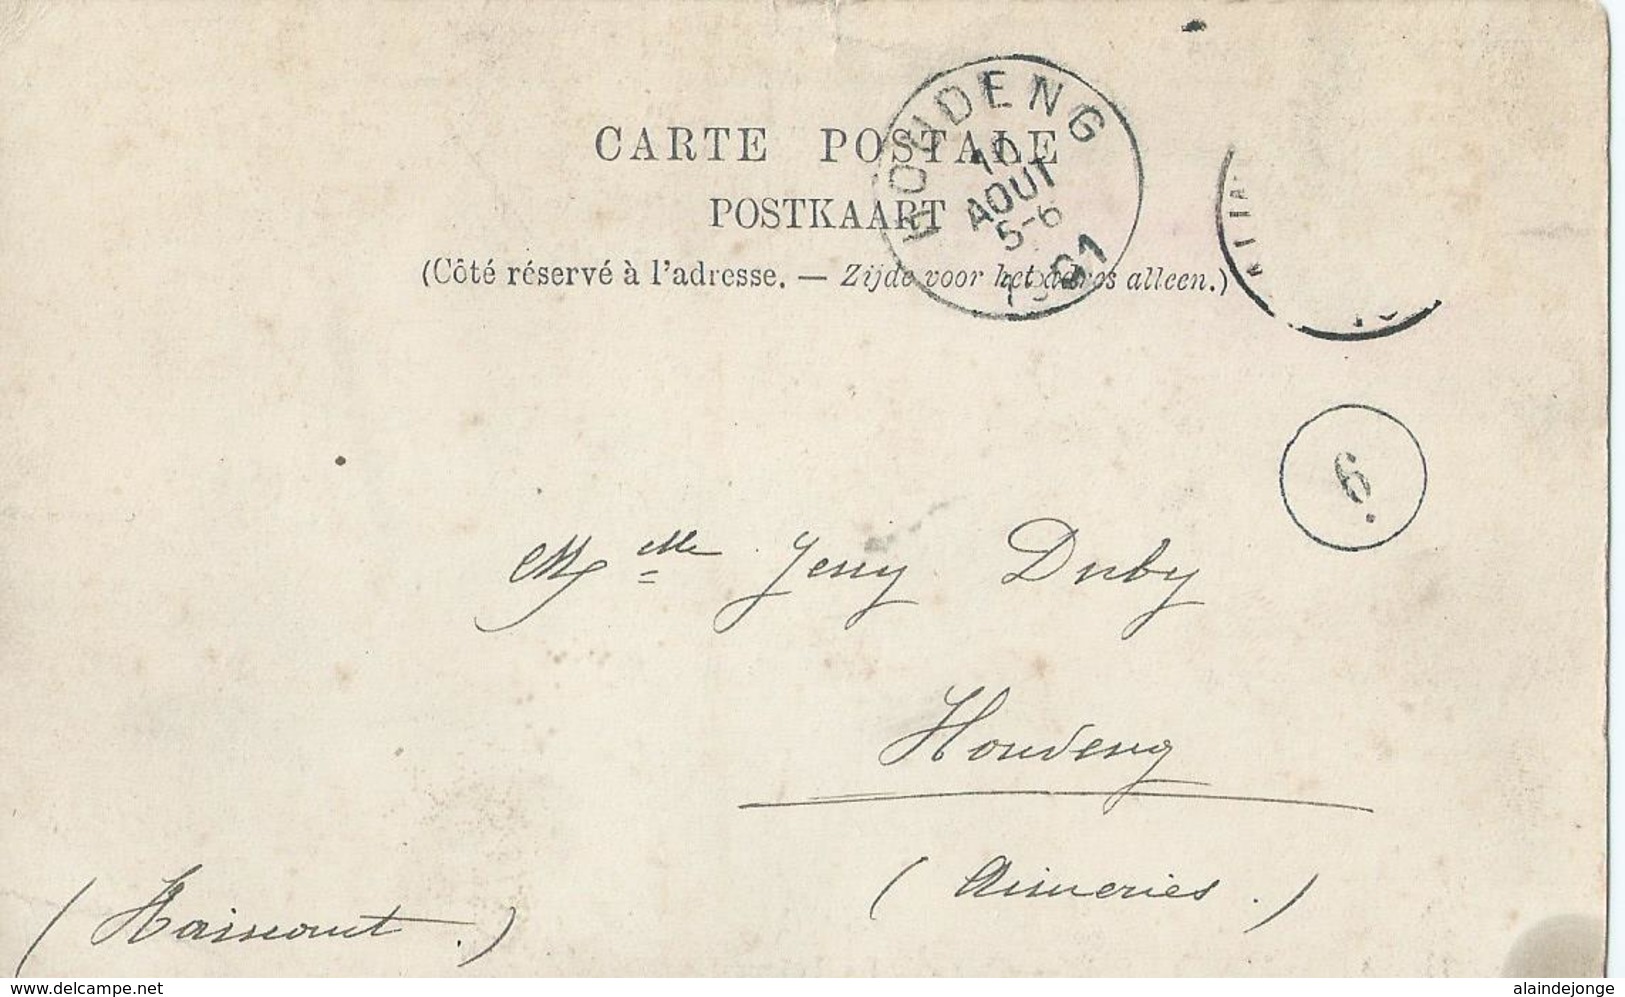 CARTE POSTALE
POSTKAART
(Côté réservé à l'adresse. — Zijde voor het adres alleen.)
HOUDENG
10
AOUT
5-6
1901
6
Melle Jeny Duby
Houdeng
(Aimeries.)
(Hainaut.)
www.delcampe.net
alaindejonge